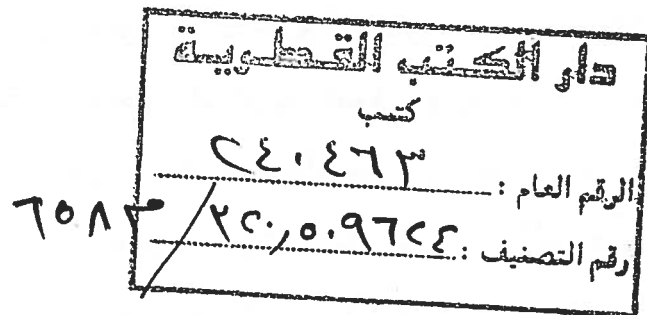 دار الكتب القطرية
كتب
الرقم العام : ٢٤٠٤٦٣
رقم التصنيف : ٣٢٠,٥٠٩٦٢٤ / ٦٥٨٣